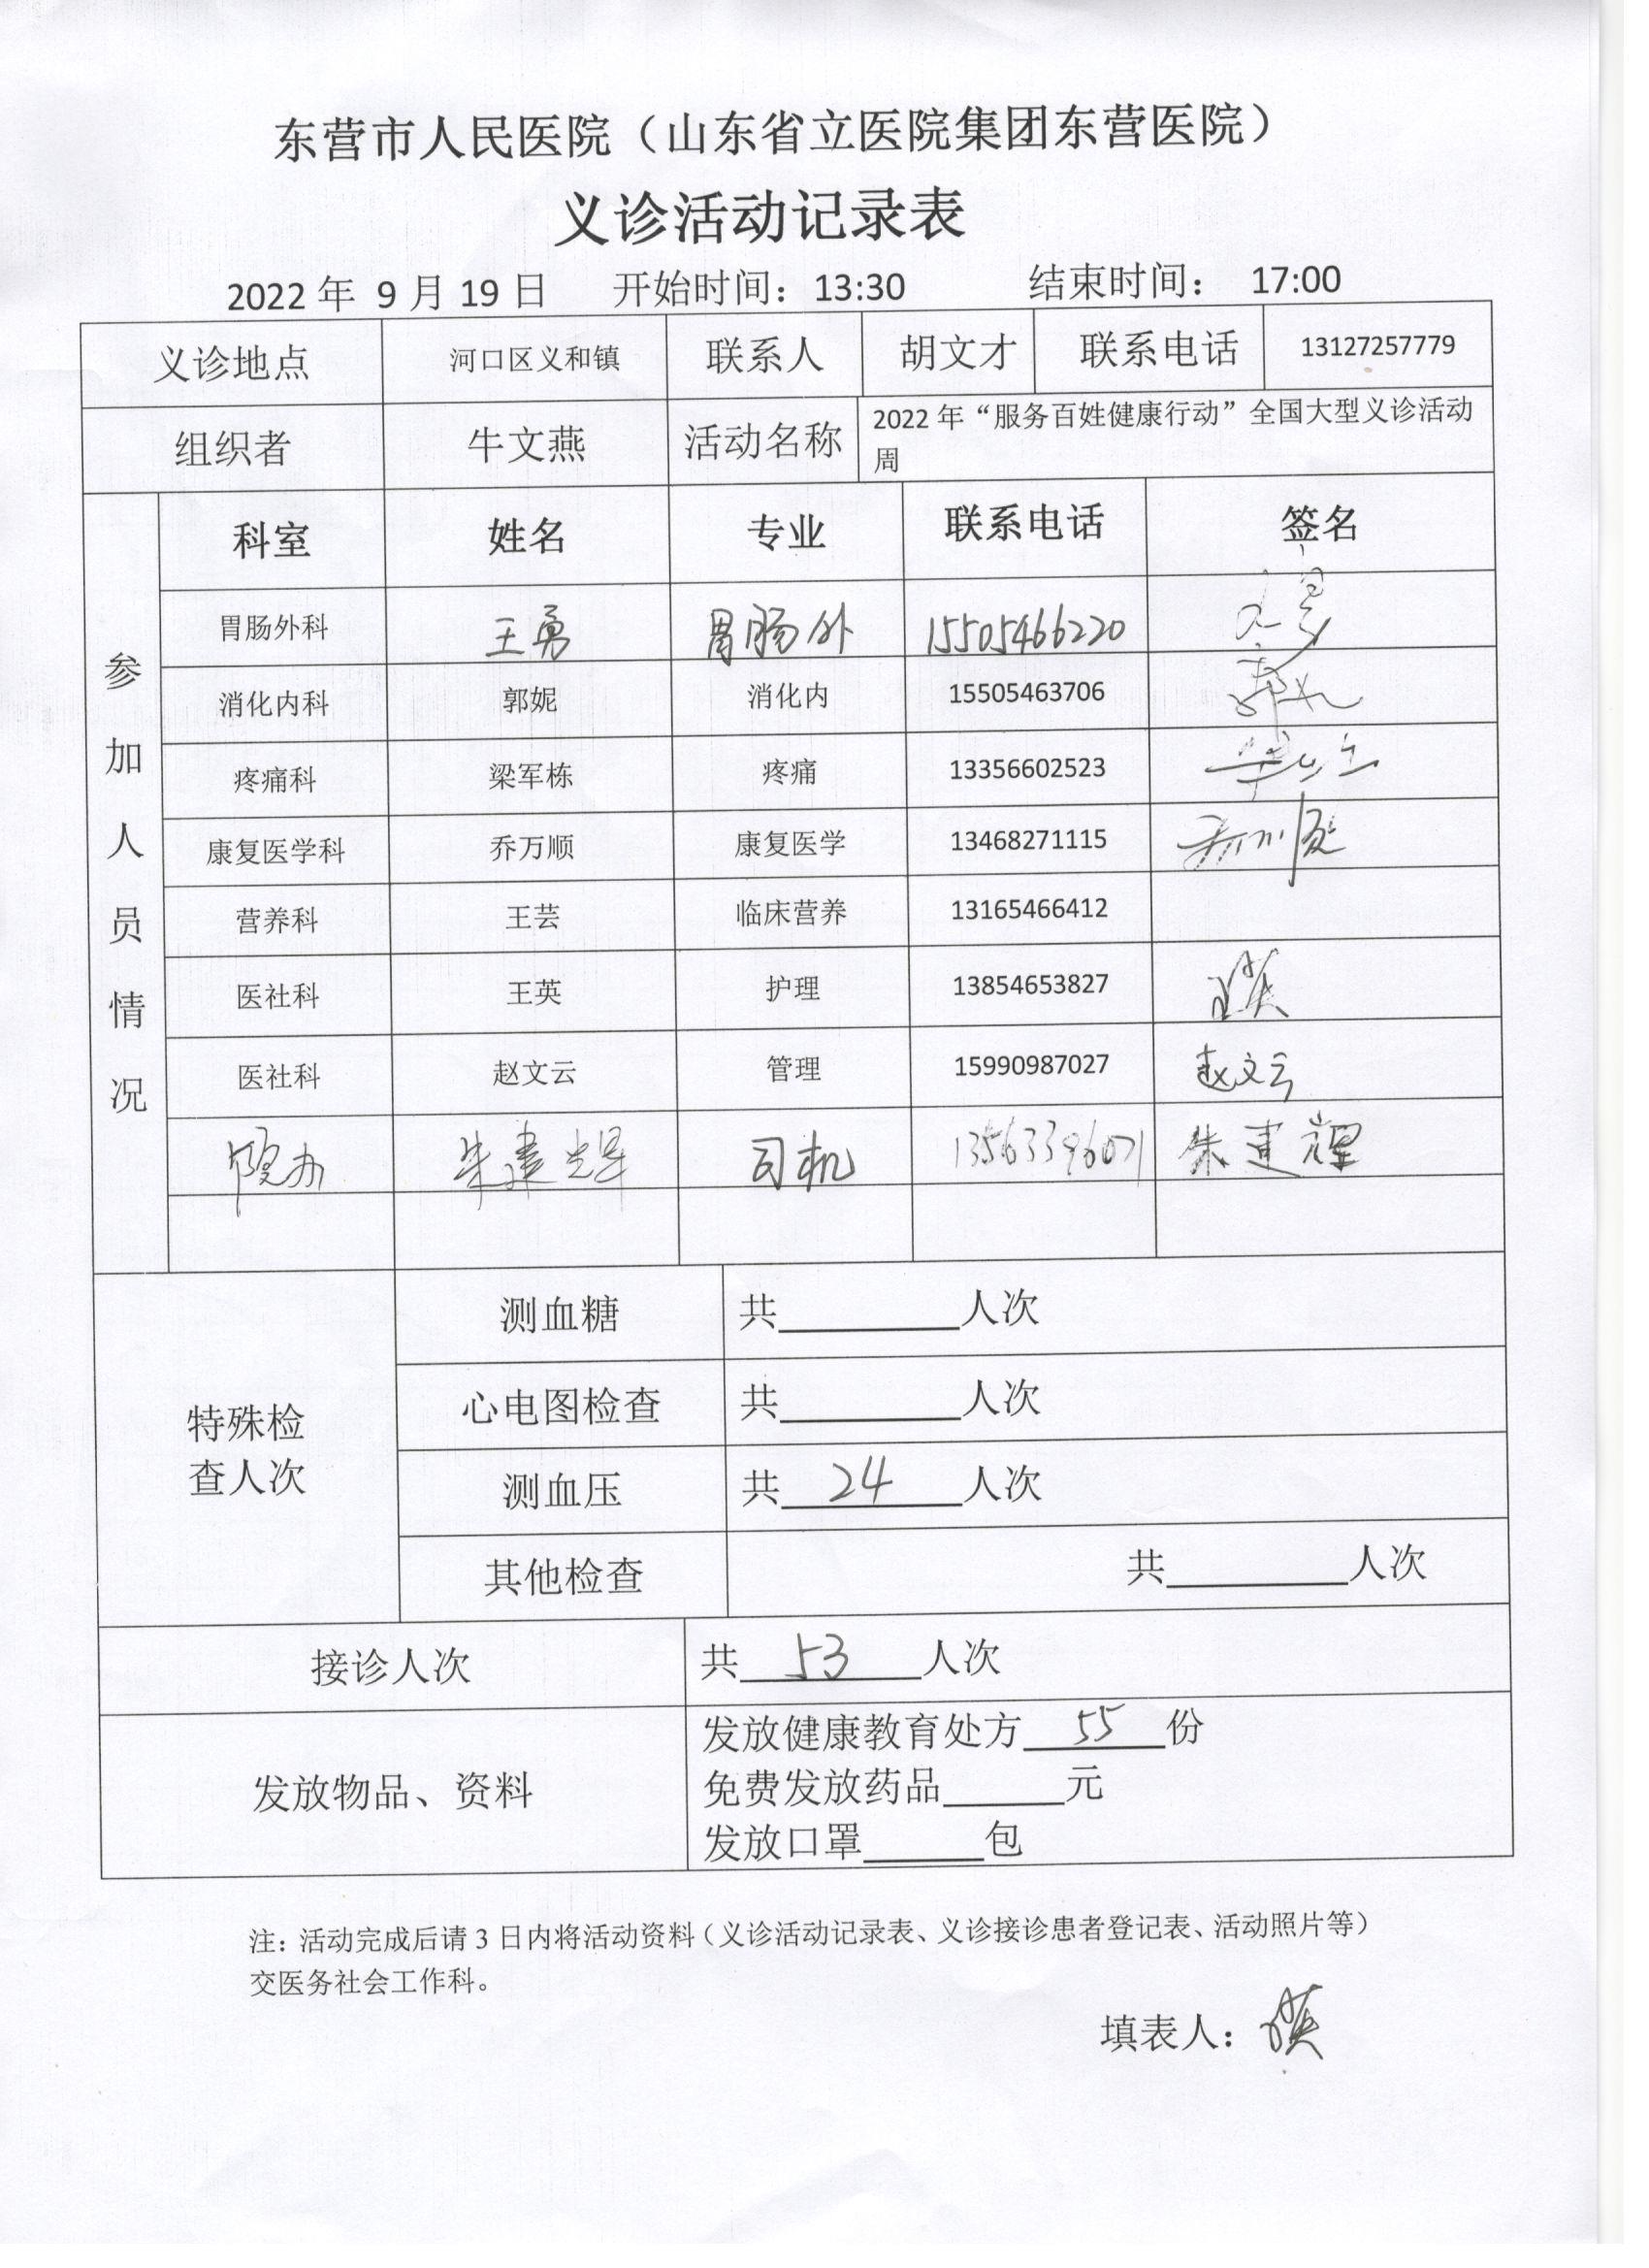 东营市人民医院（山东省立医院集团东营医院）
义诊活动记录表
2022 年 9 月 19 日 开始时间：13:30 结束时间： 17:00
义诊地点 河口区义和镇 联系人 胡文才 联系电话 13127257779
组织者 牛文燕 活动名称 2022 年“服务百姓健康行动”全国大型义诊活动
周
参加人员情况
科室 姓名 专业 联系电话 签名
胃肠外科 王勇 胃肠外 15505466220
消化内科 郭妮 消化内 15505463706 郭妮
疼痛科 梁军栋 疼痛 13356602523
康复医学科 乔万顺 康复医学 13468271115 乔万顺
营养科 王芸 临床营养 13165466412
医社科 王英 护理 13854653827 王英
医社科 赵文云 管理 15990987027 赵文云
院办 朱建辉 司机 13563396071 朱建辉
特殊检
查人次
测血糖 共______人次
心电图检查 共______人次
测血压 共 24 人次
其他检查 共______人次
接诊人次 共 53 人次
发放物品、资料
发放健康教育处方 55 份
免费发放药品______元
发放口罩______包
注：活动完成后请 3 日内将活动资料（义诊活动记录表、义诊接诊患者登记表、活动照片等）
交医务社会工作科。
填表人：王英